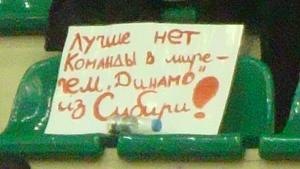 Лучше нет
Команды в мире -
чем "Динамо"
из Сибири!